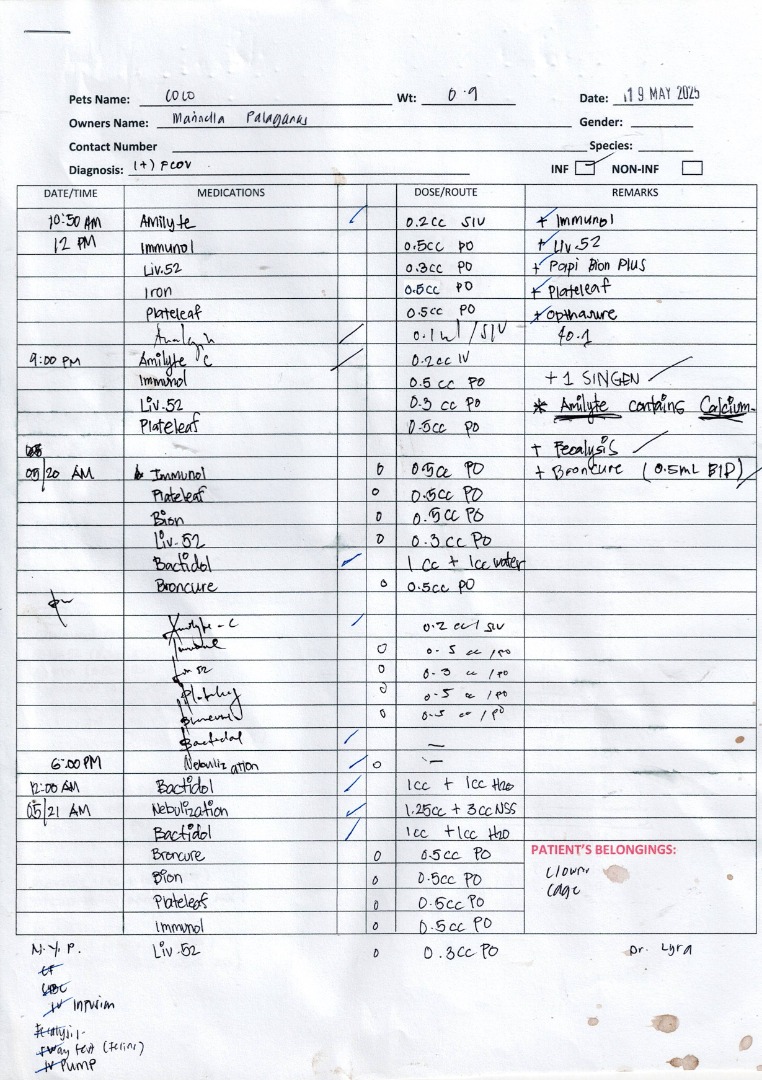 Pets Name: COCO Wt: 0.9 Date: 19 MAY 2025
Owners Name: Palaganas Gender:
Contact Number Species:
Diagnosis: (+) FCOV INF NON-INF
DATE/TIME MEDICATIONS DOSE/ROUTE REMARKS
10:50 AM Amilyte 0.2cc SIV + Immunol
12 PM Immunol 0.5cc PO + Liv.52
Liv.52 0.3cc PO + Papi Bion Plus
Iron 0.5cc PO + Plateleaf
Plateleaf 0.5cc PO + Opthasure
0.1ml/SIV 40.1
9:00 PM Amilyte C 0.2cc IV
Immunol 0.5 cc PO + 1 SINGEN
Liv.52 0.3 cc PO * Amilyte contains Calcium
Plateleaf 0.5cc PO
+ Fecalysis
05/20 AM Immunol 0 0.5cc PO + Broncure (0.5mL BID)
Plateleaf 0 0.5cc PO
Bion 0 0.5cc PO
Liv.52 0 0.3cc PO
Bactidol 1cc + 1cc water
Broncure 0 0.5cc PO
Amilyte-C 0.2 cc/SIV
0 0.5 cc/PO
Liv 52 0 0.3 cc/PO
0 0.5 cc/PO
0 0.5 cc/PO
Bactidol —
6:00 PM Nebulization 0 —
12:00 AM Bactidol 1cc + 1cc H2O
05/21 AM Nebulization 1.25cc + 3cc NSS
Bactidol 1cc + 1cc H2O
Broncure 0 0.5cc PO PATIENT'S BELONGINGS:
Bion 0 0.5cc PO
Plateleaf 0 0.5cc PO cage
Immunol 0 0.5cc PO
N.Y.P. Liv.52 0 0.3cc PO Dr. Lyra
CF
CBC
Fecalysis
4way test (feline)
IV PUMP